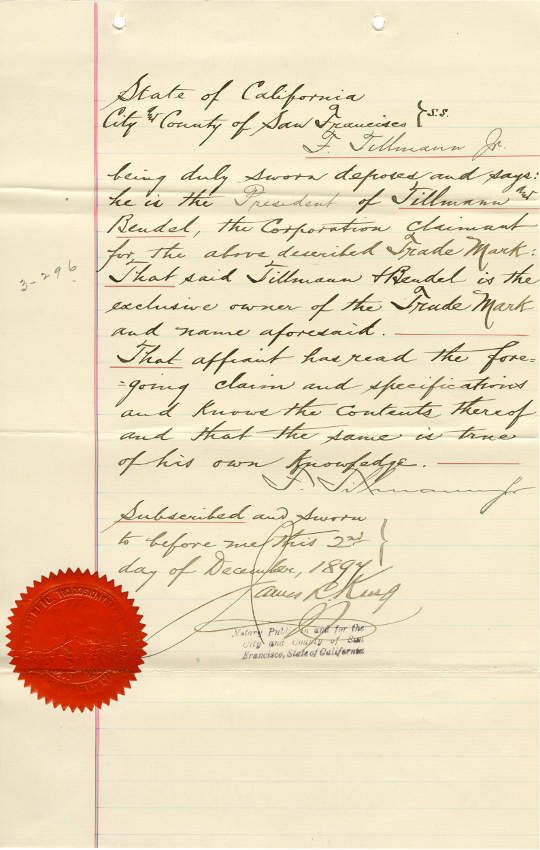 State of California
City and County of San Francisco } S.S.
F. Tillmann Jr.
being duly sworn deposes and says:
he is the President of Tillmann and
Bendel, the Corporation Claimant
for the above described Trade Mark:
That said Tillmann & Bendel is the
exclusive owner of the Trade Mark
and name aforesaid.
That affiant has read the fore=
=going claim and specifications
and Knows the Contents thereof
and that the same is true
of his own Knowledge.
F. Tillmann Jr
Subscribed and sworn
to before me this 2nd
day of December, 1897
James L. King
Notary Public in and for the
City and County of San
Francisco, State of California
3-296